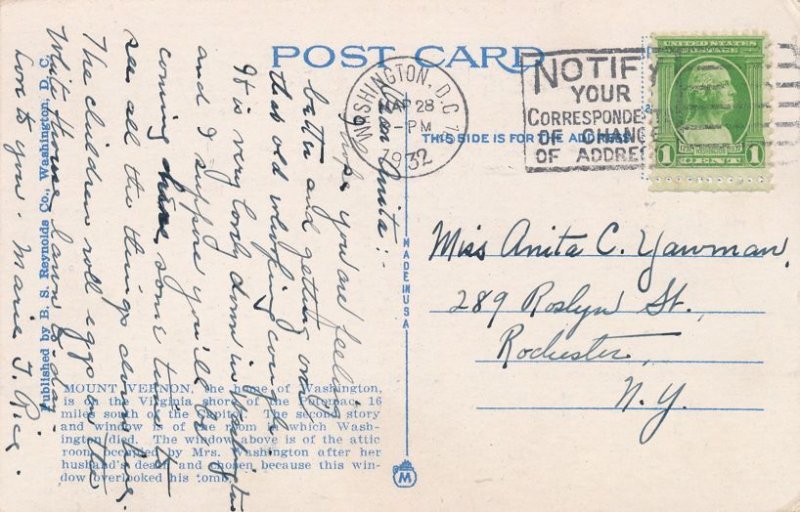 POST CARD
WASHINGTON, D.C. 7
MAR 28
-PM
1932
NOTIFY
YOUR
CORRESPONDENTS
OF CHANGE
OF ADDRESS
UNITED STATES POSTAGE
1 CENT 1
THIS SIDE IS FOR THE ADDRESS
MADE IN USA
Miss Anita C. Yawman,
289 Roslyn St.,
Rochester,
N.Y.
Dear Anita:
Hope you are feeling
better and getting over
that old whooping cough
It is very lovely down in Washington
and I suppose you'll be
coming here some time to
see all the things down here.
The children roll eggs on the
White House lawn
Love to you. Marie T. Rice.
Published by B. S. Reynolds Co., Washington, D. C.
MOUNT VERNON, the home of Washington,
is on the Virginia shore of the Potomac, 16
miles south of the Capitol. The second story
and window is of the room in which Wash-
ington died. The window above is of the attic
room occupied by Mrs. Washington after her
husband's death and chosen because this win-
dow overlooked his tomb.
M